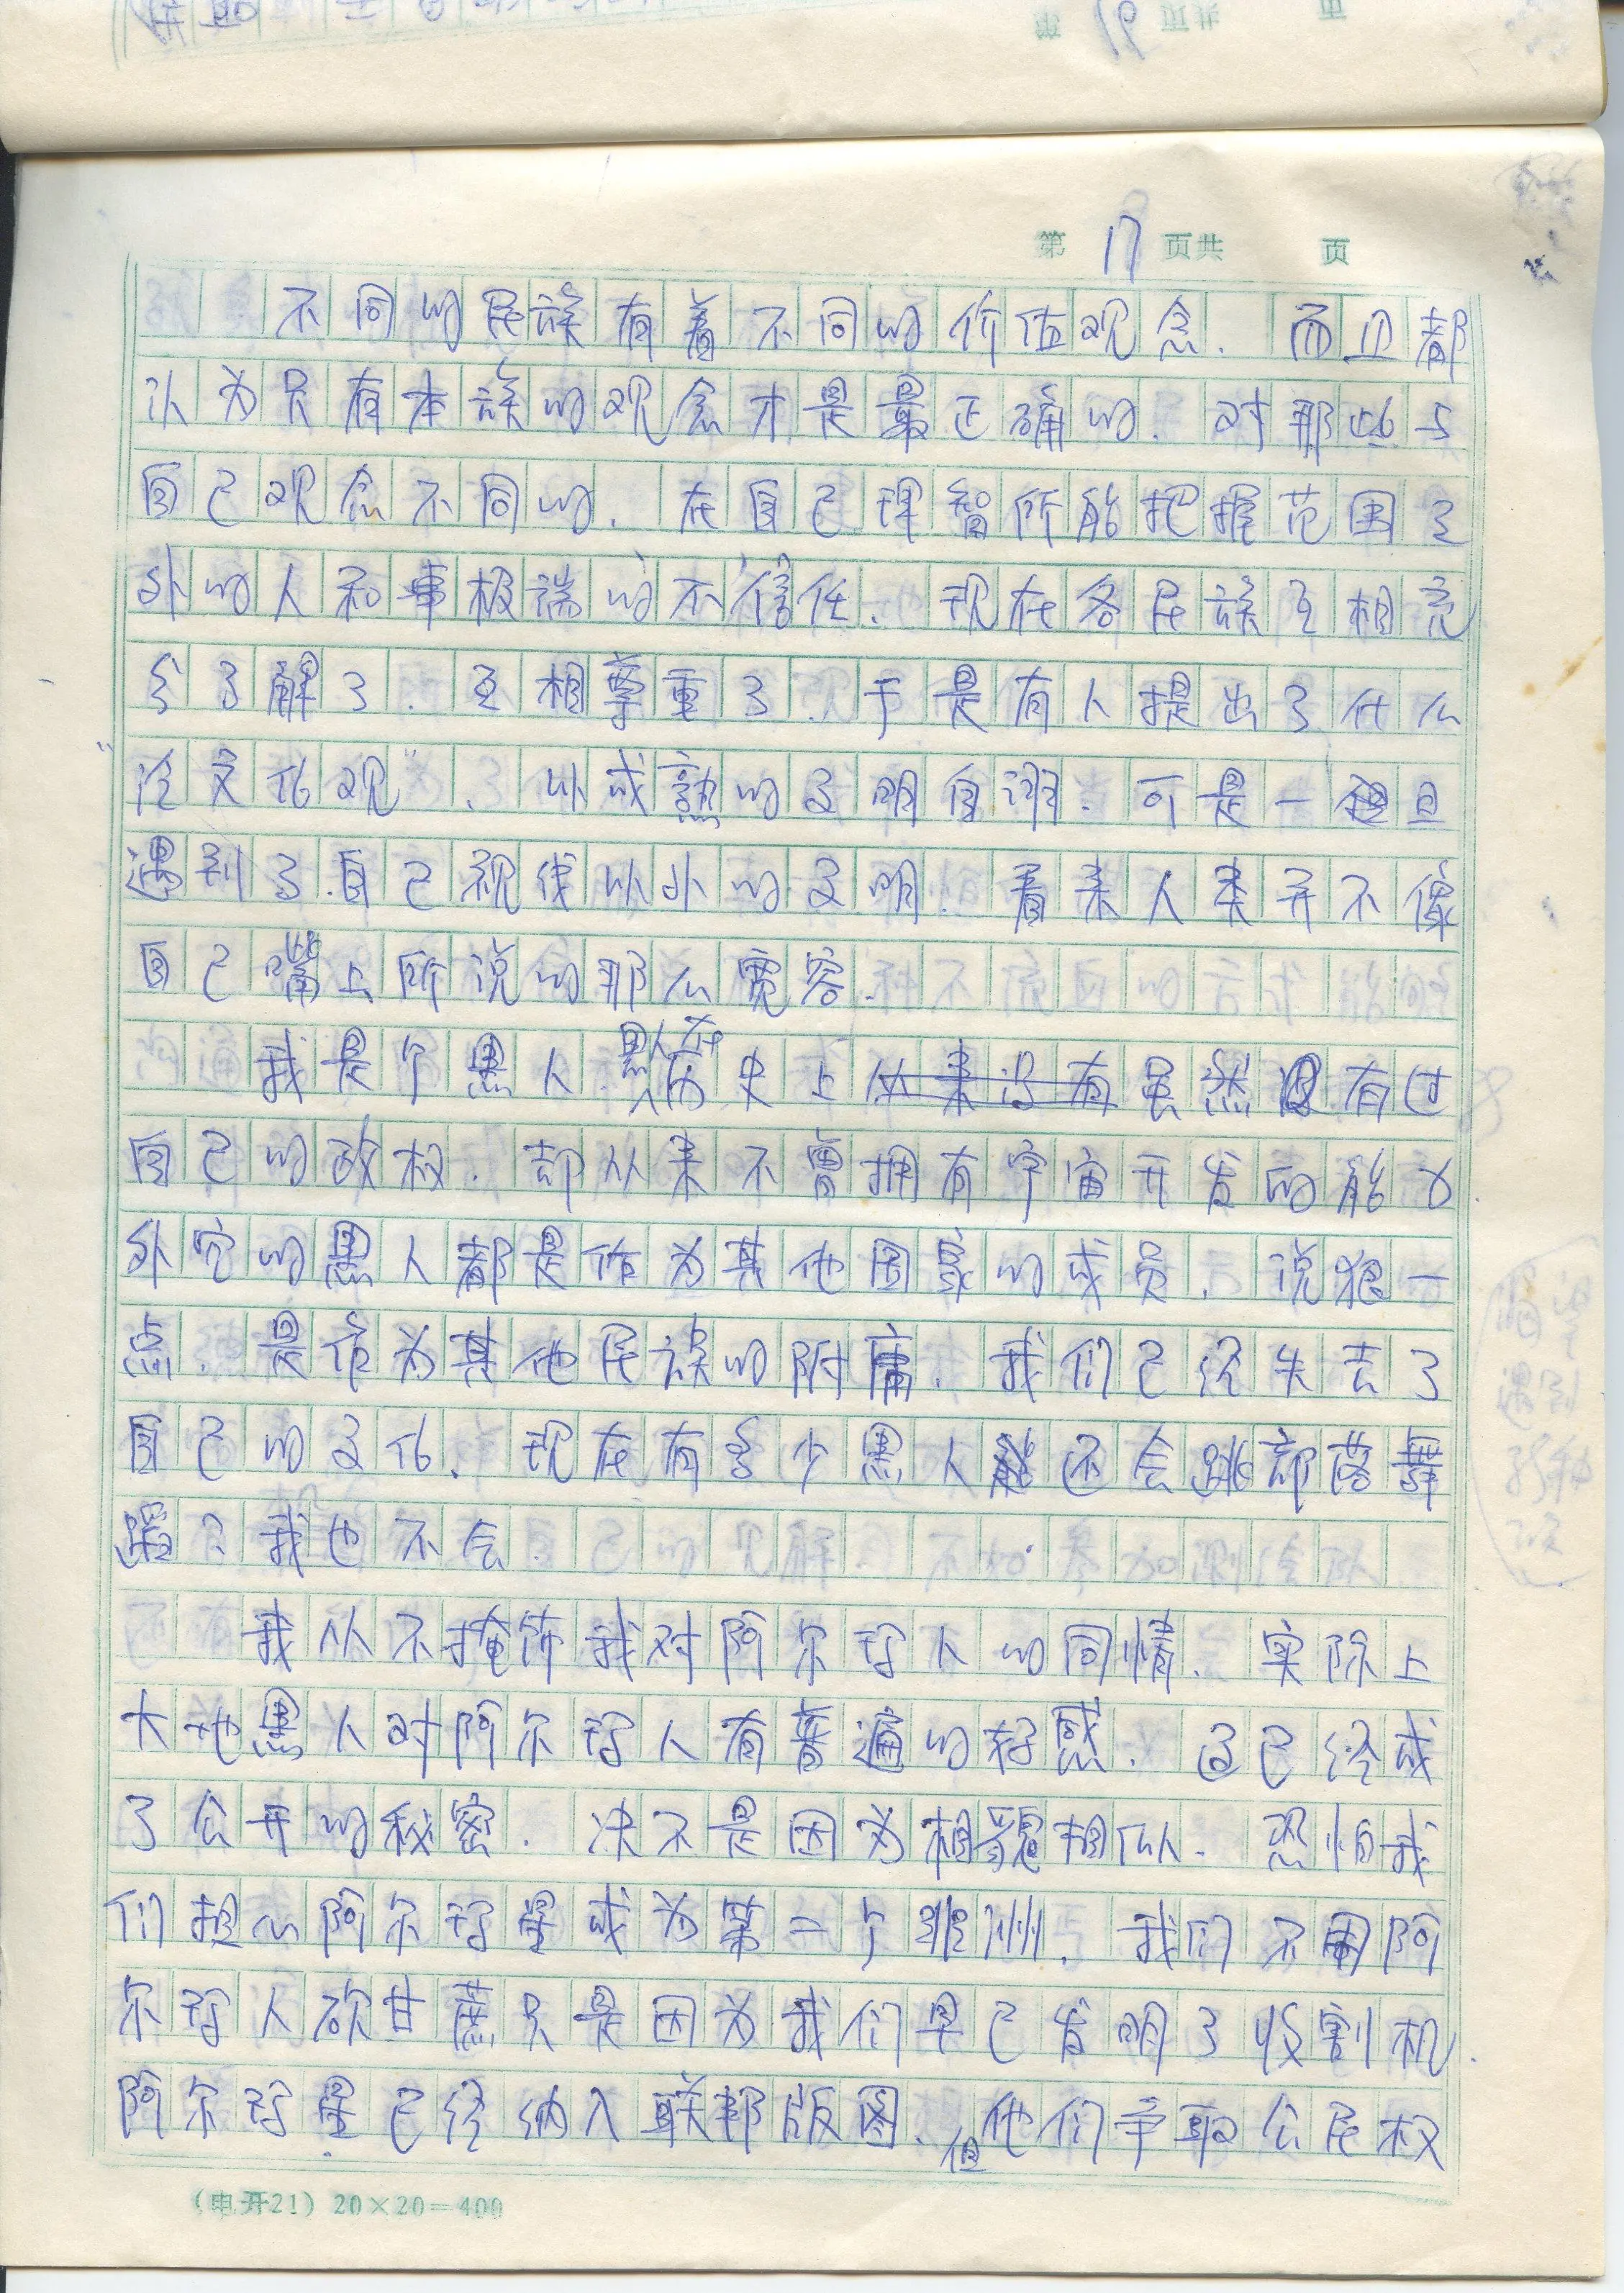 第 17 页共 页
不同的民族有着不同的价值观念．而且都
认为只有本族的观念才是最正确的．对那些与
自己观念不同的．在自己理智所能把握范围之
外的人和事极端的不信任．现在各民族互相充
分了解了．互相尊重了．于是有人提出了什么
“泛文化观”．以成熟的文明自诩．可是一旦
遇到了自己视线以外的文明．看来人类并不像
自己嘴上所说的那么宽容．
我是个黑人．黑人在历史上虽然有过
自己的政权．却从来不曾拥有宇宙开发的能力．
外空的黑人都是作为其他国家的成员．说狠一
点．是作为其他民族的附庸．我们已经失去了
自己的文化．现在有多少黑人还会跳部落舞
蹈？我也不会．
我从不掩饰我对阿尔ិ人的同情．实际上
大地黑人对阿尔人有普遍的好感．这已经成
了公开的秘密．决不是因为相貌相似．恐怕我
们担心阿尔星成为第二个非洲．我们不用阿
尔人砍甘蔗只是因为我们早已发明了收割机．
阿尔星已经纳入联邦版图．但他们争取公民权
（电开21）20×20＝400